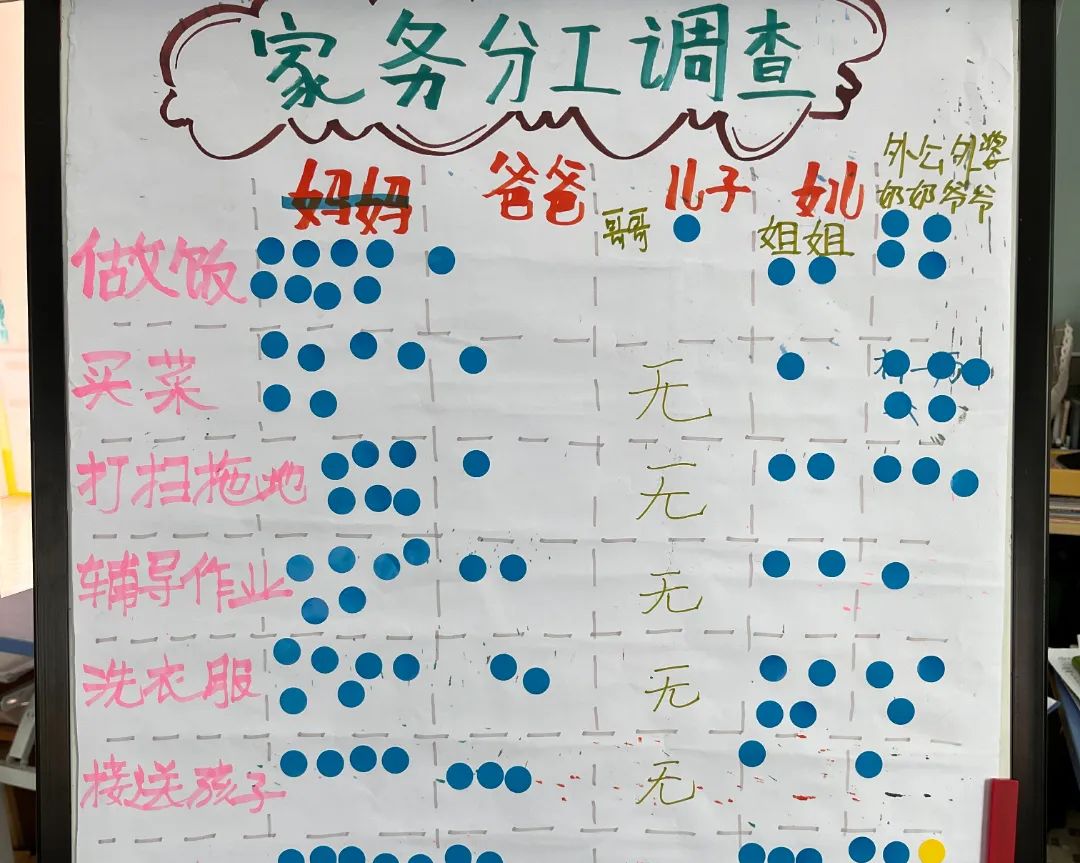 家务分工调查
外公外婆
妈妈 爸爸 儿子 女儿 奶奶爷爷
哥哥 姐姐
做饭
买菜 无
打扫拖地 无
辅导作业 无
洗衣服 无
接送孩子 无